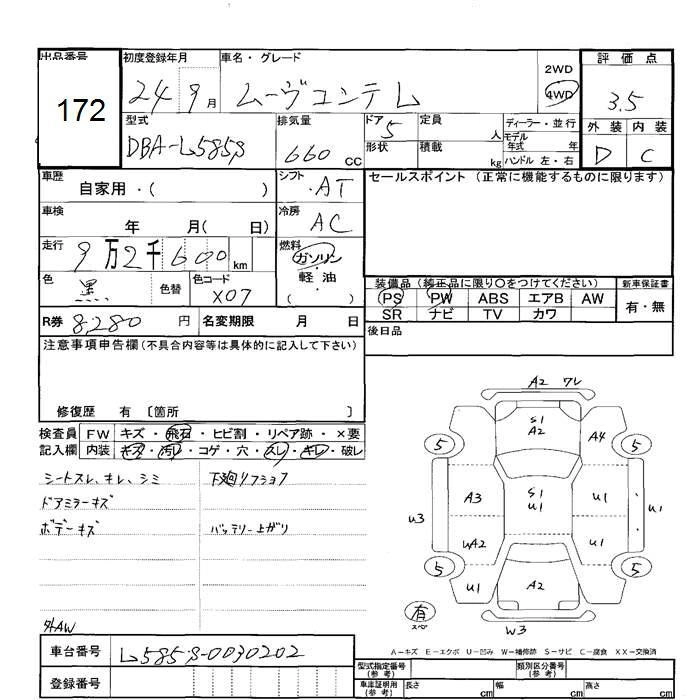 出品番号 初度登録年月 車名・グレード 2WD 評価点
172 24 9月 ムーヴコンテ L 4WD 3.5
型式 排気量 ドア 定員 ディーラー・並行 外装 内装
DBA-L585S 660 CC 5 人 モデル年式 年 D C
形状 積載 kg ハンドル 左・右
車歴 自家用・( ) シフト ・AT セールスポイント (正常に機能するものに限ります)
車検 年 月( 日) 冷房 AC
走行 9万2千600km 燃料 ガソリン・軽油
色 黒 色替 色コード X07 ( ) 装備品 (純正品に限り○をつけてください) 新車保証書
PS PW ABS エアB AW 有・無
SR ナビ TV カワ
R券 8,280 円 名変期限 月 日 後日品
注意事項申告欄 (不具合内容等は具体的に記入して下さい)
修復歴 有 〔箇所 〕
検査員 FW キズ・飛石・ヒビ割・リペア跡・×要
記入欄 内装 キズ・汚レ・コゲ・穴・スレ・キレ・破レ
シートスレ、キレ、シミ 下廻リフショク
ドアミラーキズ
ボデーキズ バッテリー上がり
外AW
A2 ワレ
S1
A2
5 A4 5
A3 S1 U1 U1
U3 U1
WA2 U1
5 5
U1 A2 U1
有
スペア
W3
A-キズ E-エクボ U-凹み W-補修跡 S-サビ C-腐食 XX-交換済
車台番号 L585S-0030202
登録番号
型式指定番号 (参考) 類別区分番号 (参考)
車庫証明用 (参考) 長さ cm 幅 cm 高さ cm